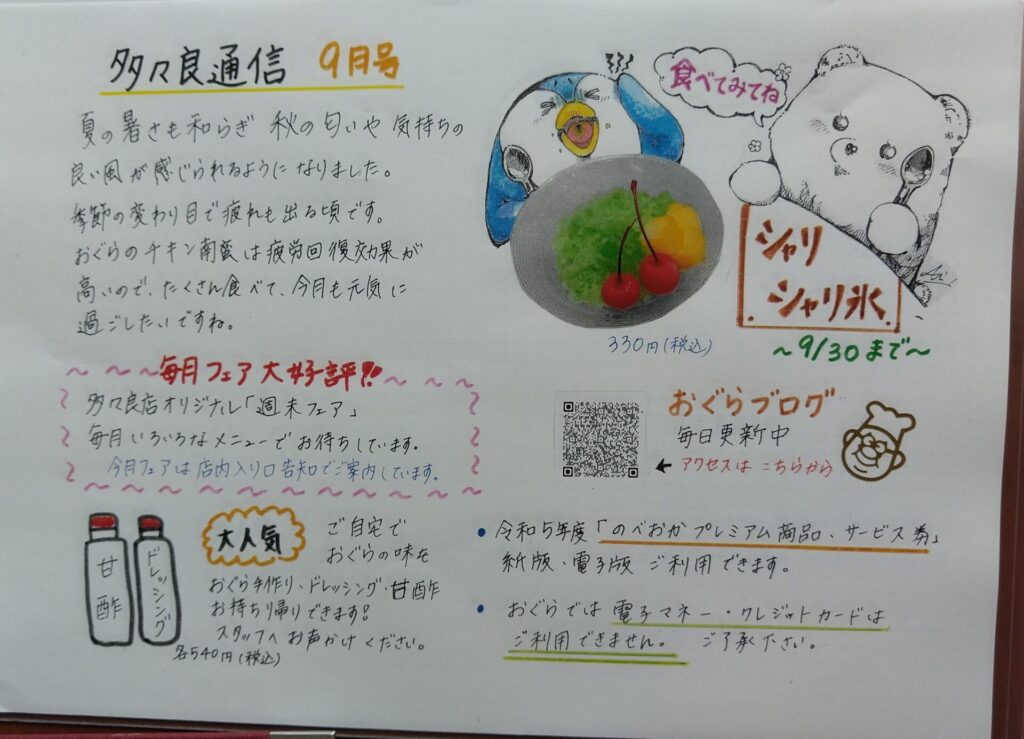 多々良通信 9月号
夏の暑さも和らぎ 秋の匂いや 気持ちの
良い風が感じられるようになりました。
季節の変わり目で疲れも出る頃です。
おぐらのチキン南蛮は疲労回復効果が
高いので、たくさん食べて、今月も元気に
過ごしたいですね。
食べてみてね
シャリ
シャリ氷
330円(税込)
～9/30まで～
毎月フェア大好評!!
多々良店オリジナル「週末フェア」
毎月いろいろなメニューでお待ちしています。
今月フェアは店内入り口告知でご案内しています。
おぐらブログ
毎日更新中
←アクセスはこちらから
甘酢
ドレッシング
各540円(税込)
大人気
ご自宅で
おぐらの味を
おぐら手作り・ドレッシング・甘酢
お持ち帰りできます!
スタッフへお声かけください。
・令和5年度「のべおかプレミアム商品、サービス券」
紙版・電子版 ご利用できます。
・おぐらでは電子マネー・クレジットカードは
ご利用できません。 ご了承下さい。